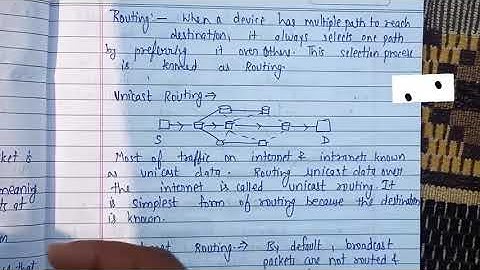 Routing:- When a device has multiple path to reach
destination, it always selects one path
by preferring it over others. This selection process
is known as Routing.
Unicast Routing →
S D
Most of traffic on internet & intranets known
as unicast data. Routing unicast data over
the internet is called unicast routing. It
is simplest form of routing because the destination
is known.
Routing → By default, broadcast
packets are not routed &
ket is
meaning
ts at
that